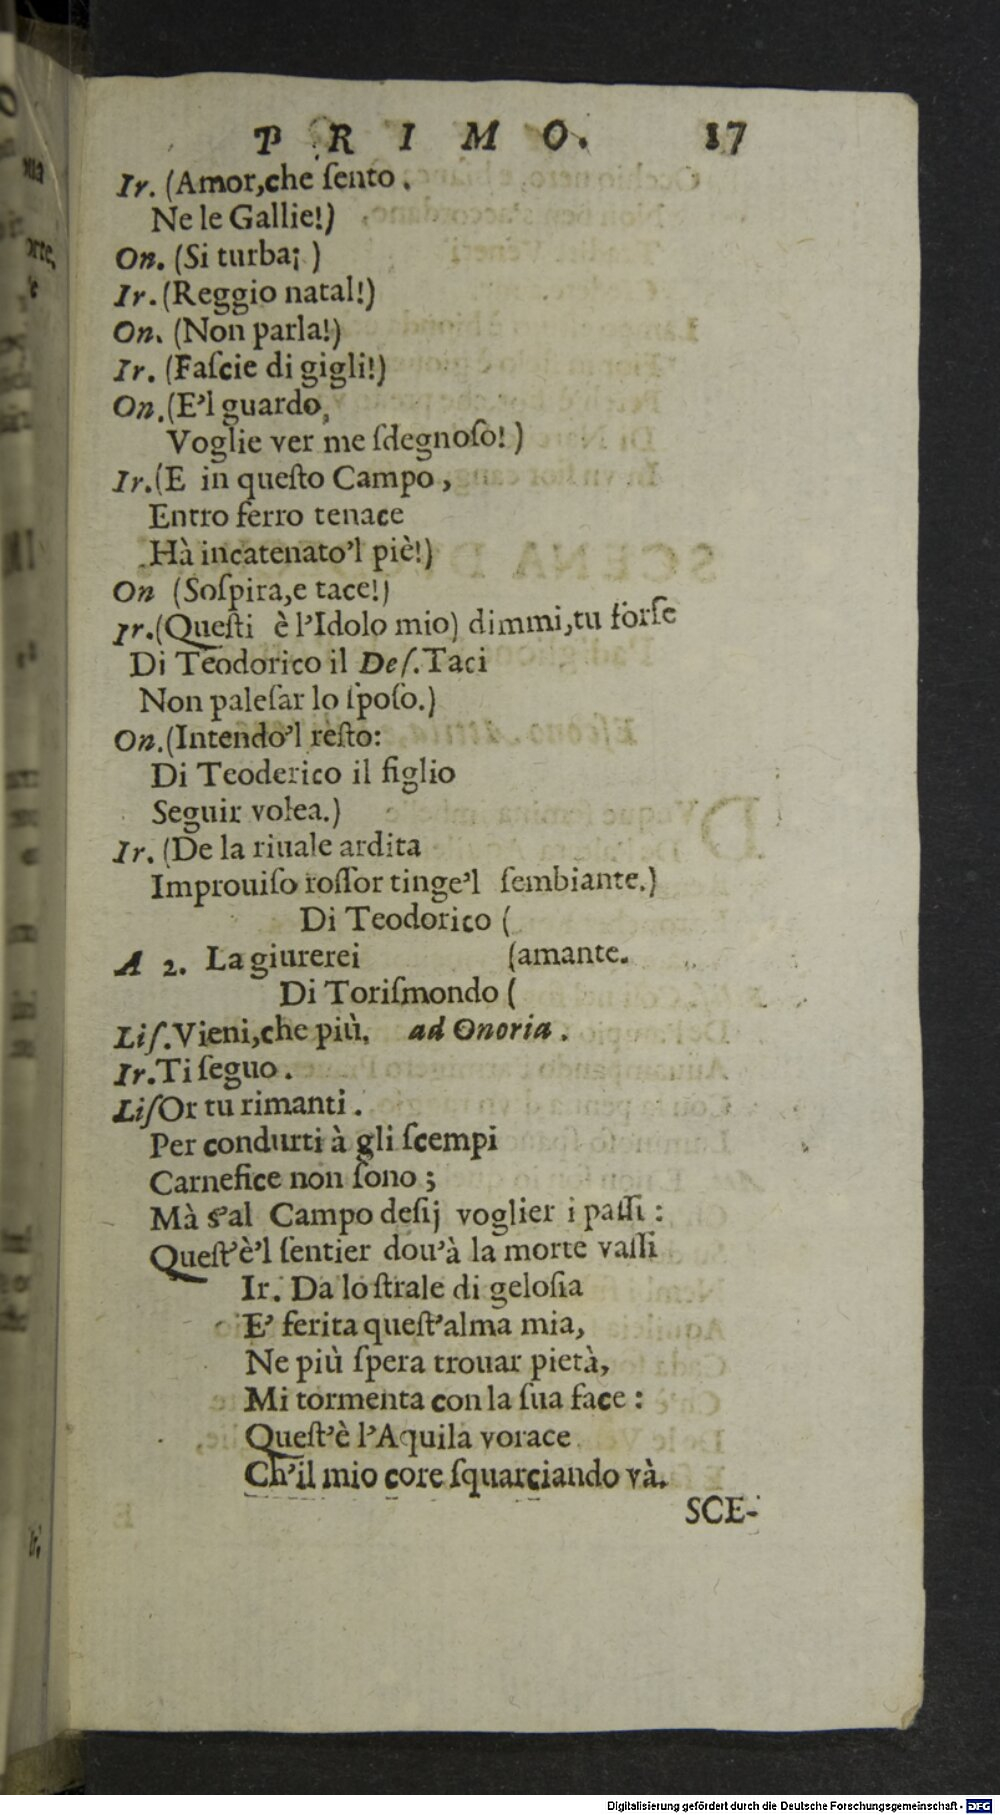 PRIMO. 17
Ir. (Amor,che ſento.
Ne le Gallie!)
On. (Si turba¡)
Ir. (Reggio natal!)
On. (Non parla!)
Ir. (Faſcie di gigli!)
On.(E'l guardo,
Voglie ver me ſdegnoſo!)
Ir.(E in queſto Campo,
Entro ferro tenace
Hà incatenato'l piè!)
On (Soſpira,e tace!)
Ir.(Queſti è l'Idolo mio) dimmi,tu forſe
Di Teodorico il Deſ.Taci
Non paleſar lo ſpoſo.)
On.(Intendo'l reſto:
Di Teoderico il figlio
Seguir volea.)
Ir. (De la riuale ardita
Improuiſo roſſor tinge'l ſembiante.)
Di Teodorico (
A 2. La giurerei (amante.
Di Toriſmondo (
Liſ.Vieni,che più, ad Onoria.
Ir.Ti ſeguo.
LiſOr tu rimanti.
Per condurti à gli ſcempi
Carnefice non ſono;
Mà s'al Campo deſij voglier i paſſi:
Queſt'è'l ſentier dou'à la morte vaſſi
Ir. Da lo ſtrale di geloſia
E' ferita queſt'alma mia,
Ne più ſpera trouar pietà,
Mi tormenta con la ſua face:
Queſt'è l'Aquila vorace
Ch'il mio core ſquarciando và.
SCE-
Digitalisierung gefördert durch die Deutsche Forschungsgemeinschaft - DFG